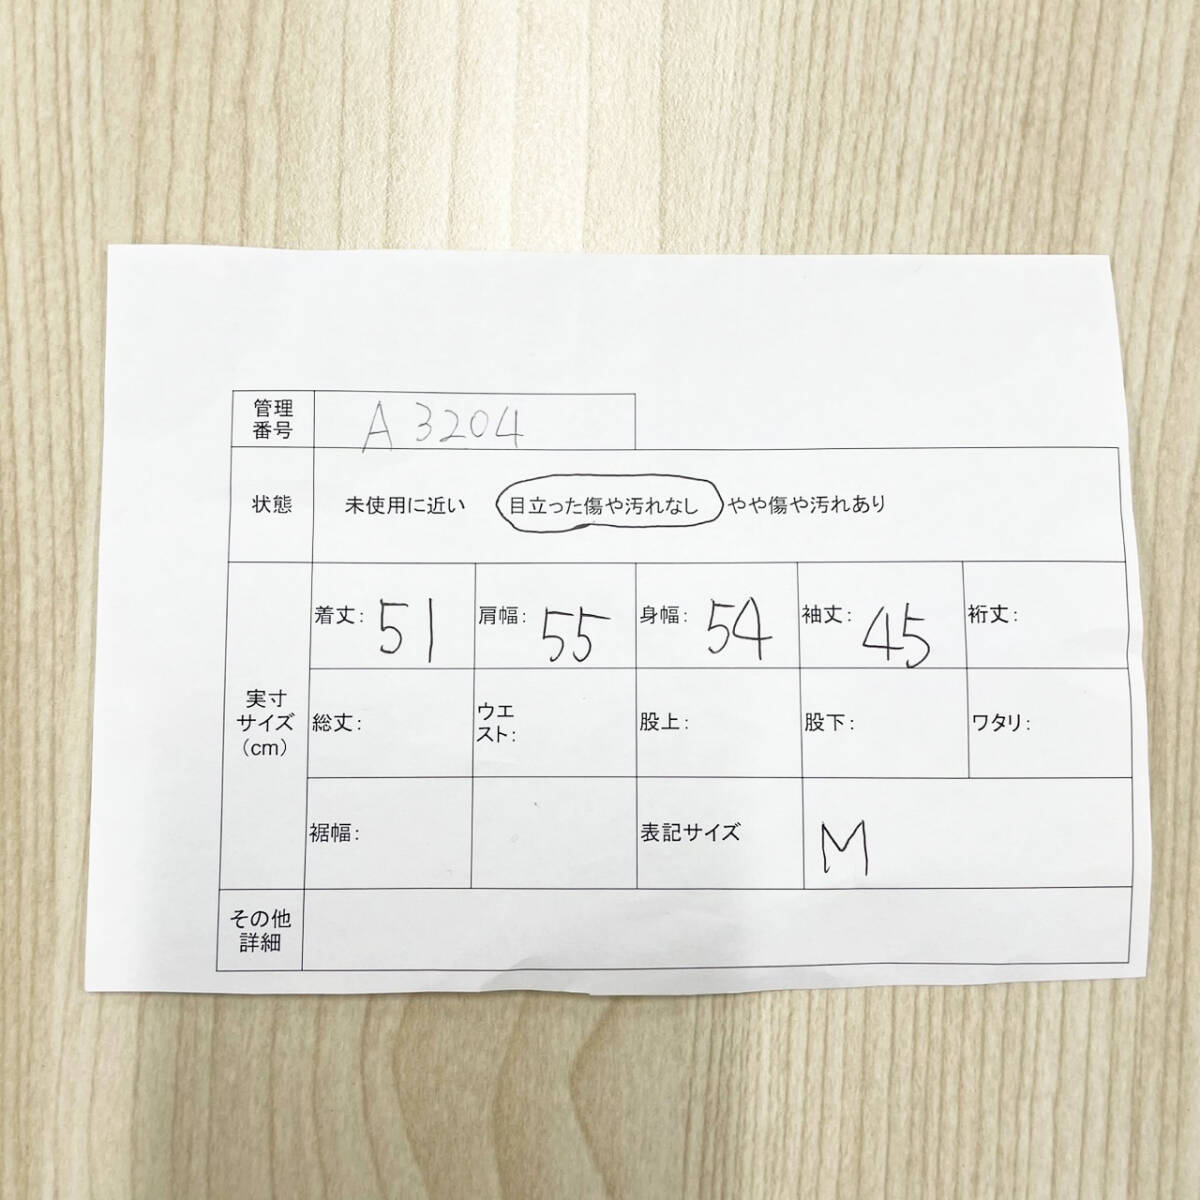 管理
番号
A3204
状態
未使用に近い 目立った傷や汚れなし やや傷や汚れあり
実寸
サイズ
（cm）
着丈: 51 肩幅: 55 身幅: 54 袖丈: 45 裄丈:
総丈: ウエ
スト: 股上: 股下: ワタリ:
裾幅: 表記サイズ M
その他
詳細